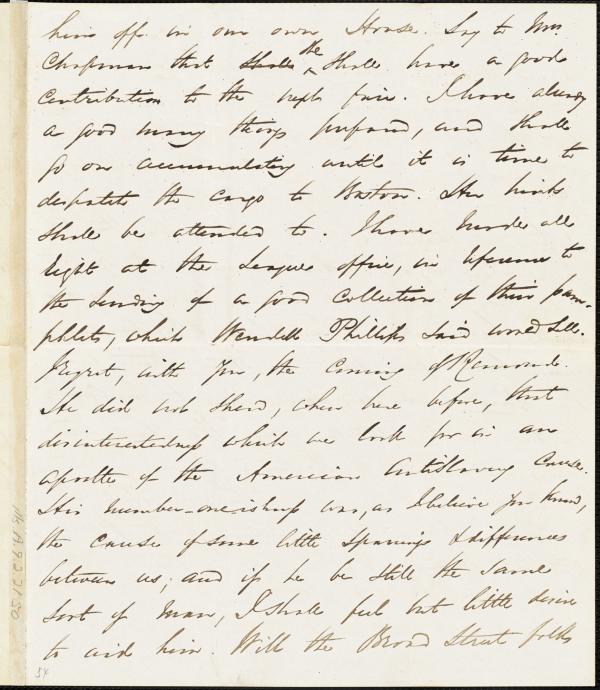 him off in our own House. Say to Mrs.
Chapman that shall she shall have a good
contribution to the next fair. I have already
a good many things prepared, and shall
go on accumulating until it is time to
despatch the cargo to Boston. Her hints
shall be attended to. I have made all
right at the League office, in reference to
the sending of a good Collection of their pam-
phlets, which Wendell Phillips said would sell.
I regret, with you, the coming of Remond.
He did not shew, when here before, that
disinterestedness which we look for in an
apostle of the American Antislavery Cause.
His number-one-ishness was, as I believe you know,
the cause of some little sparrings & differences
between us; and if he be still the same
sort of man, I shall feel but little desire
to aid him. Will the Broad Street folks
Ms A.9.2.21.50
54